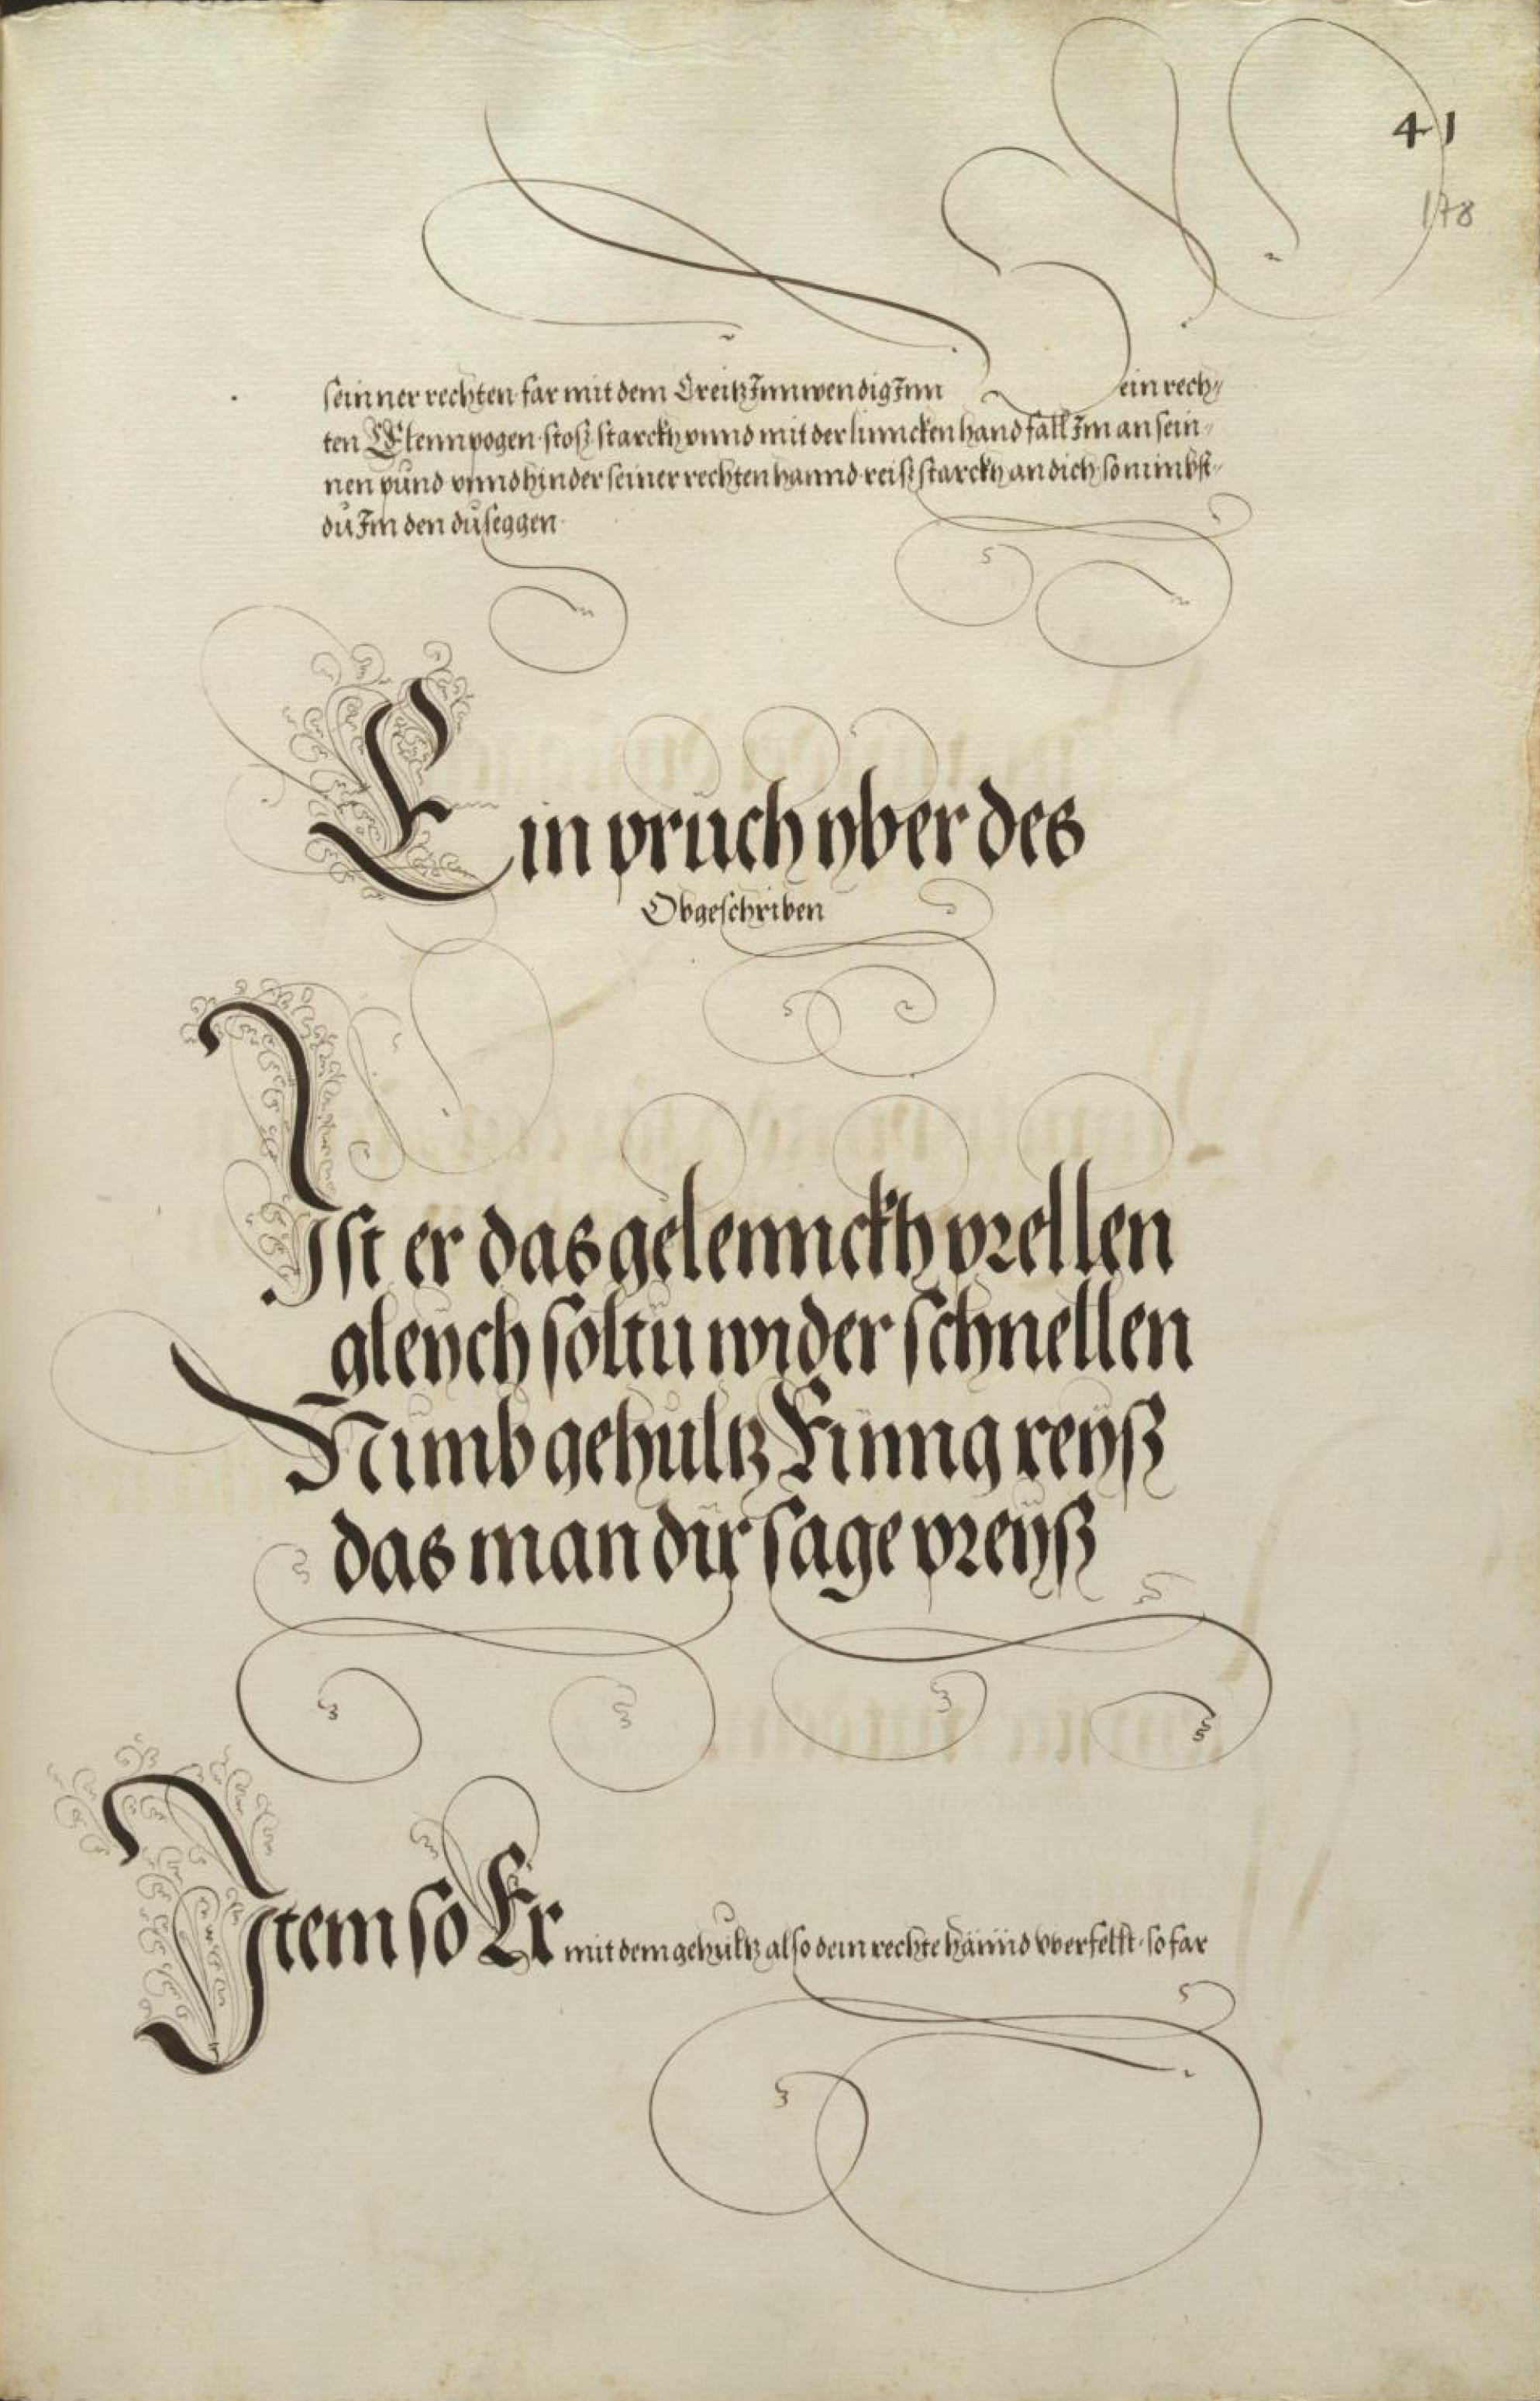 41
178
seinner rechten far mit dem Creitz Innwendig Inn sein rech-
ten Elennpogen stoß starckh vnnd mit der linncken hand fall Im an sein-
nen pund vnnd hinder seiner rechten hannd reiß starckh an dich so nimbst-
du Im den duseggen
Ein pruch yber des
Obgeschriben
Ist er das gelennckh prellen
gleych soltu wider schnellen
Nimb gehultz Finng reyß
das man dir sage preyß
Item so Er mit dem gehultz also dein rechte hannd yberfellt so far